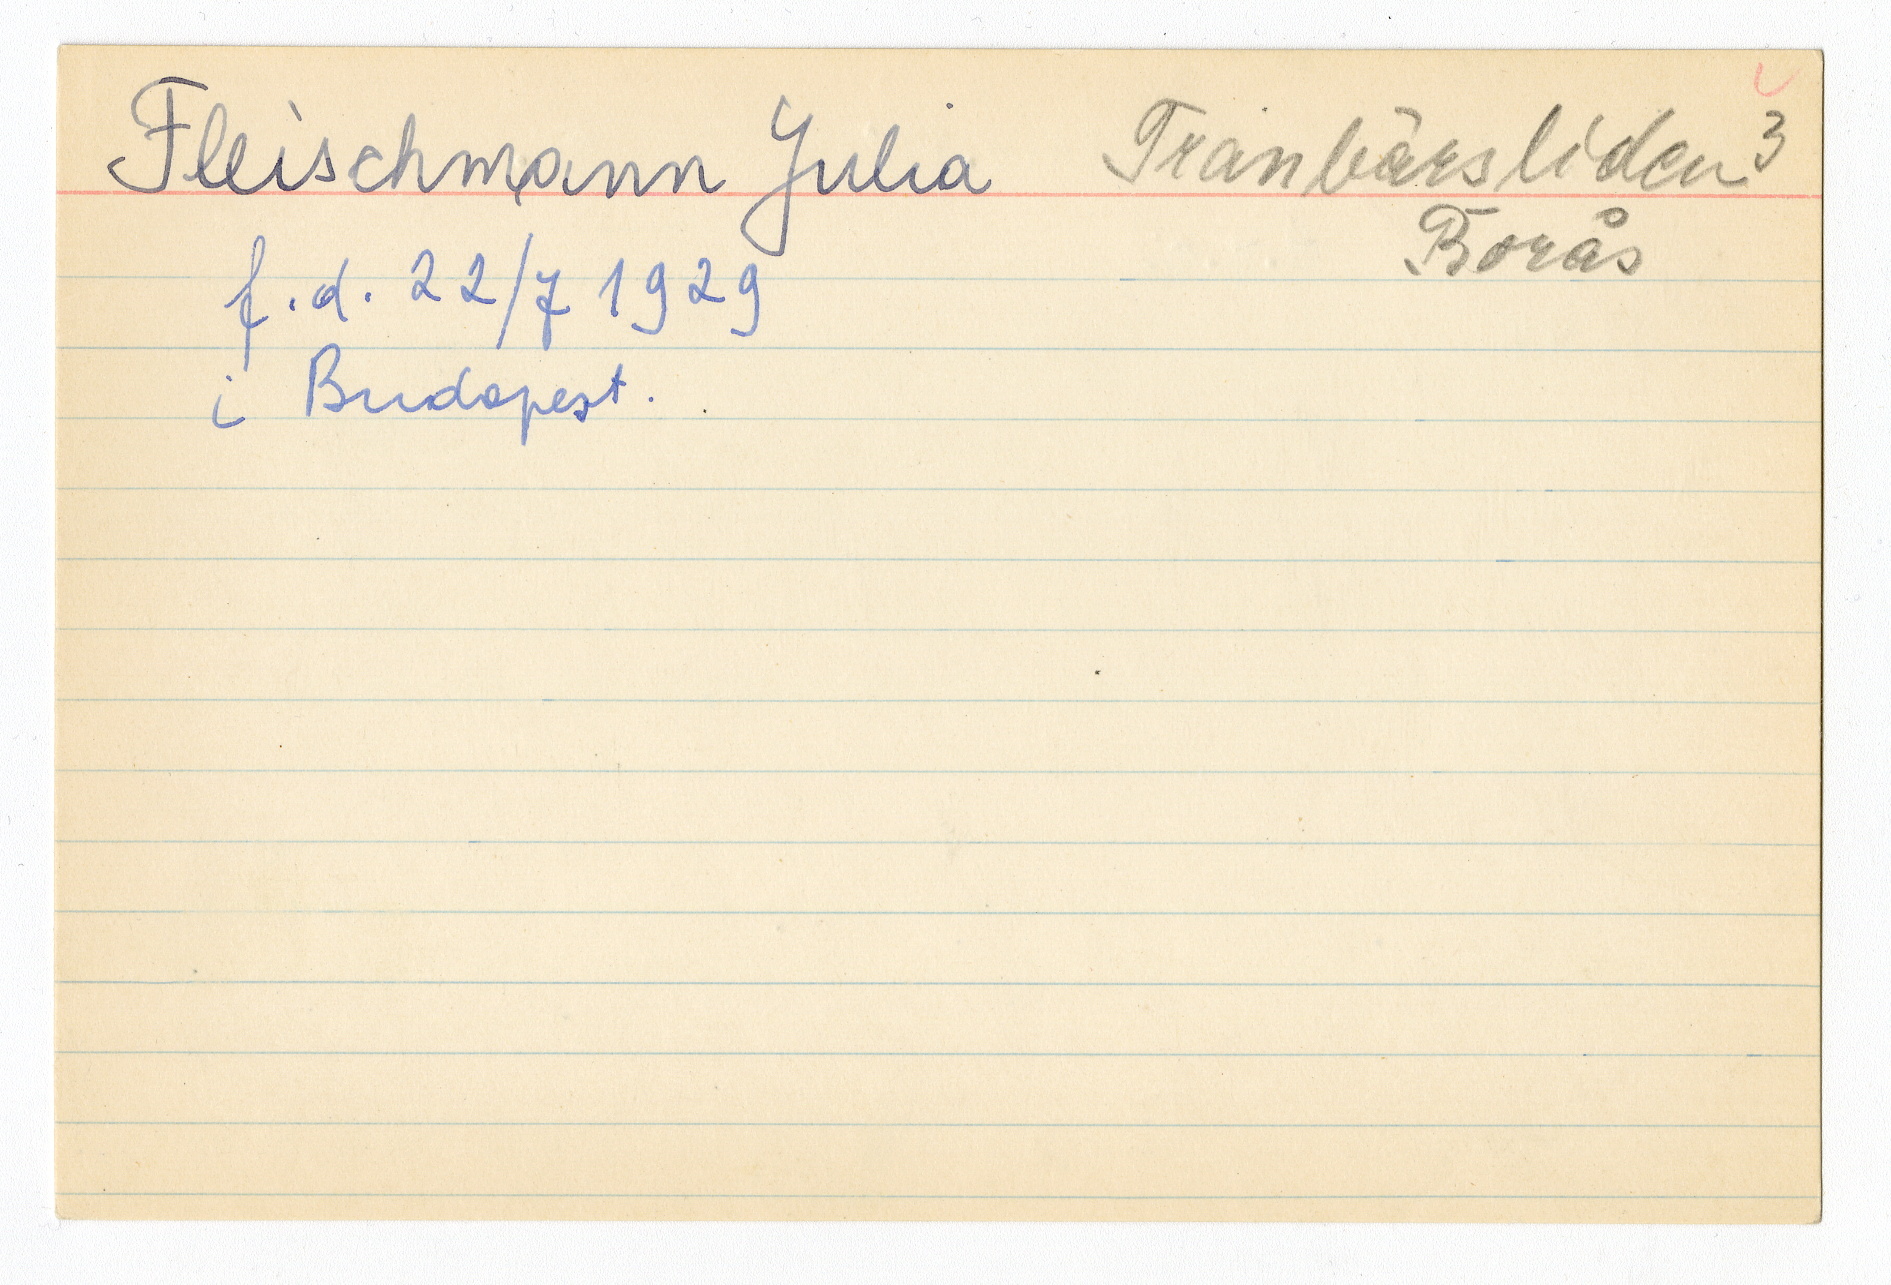 Fleischmann Julia Tranbärsliden 3
Borås
f.d. 22/7 1929
i Budapest.